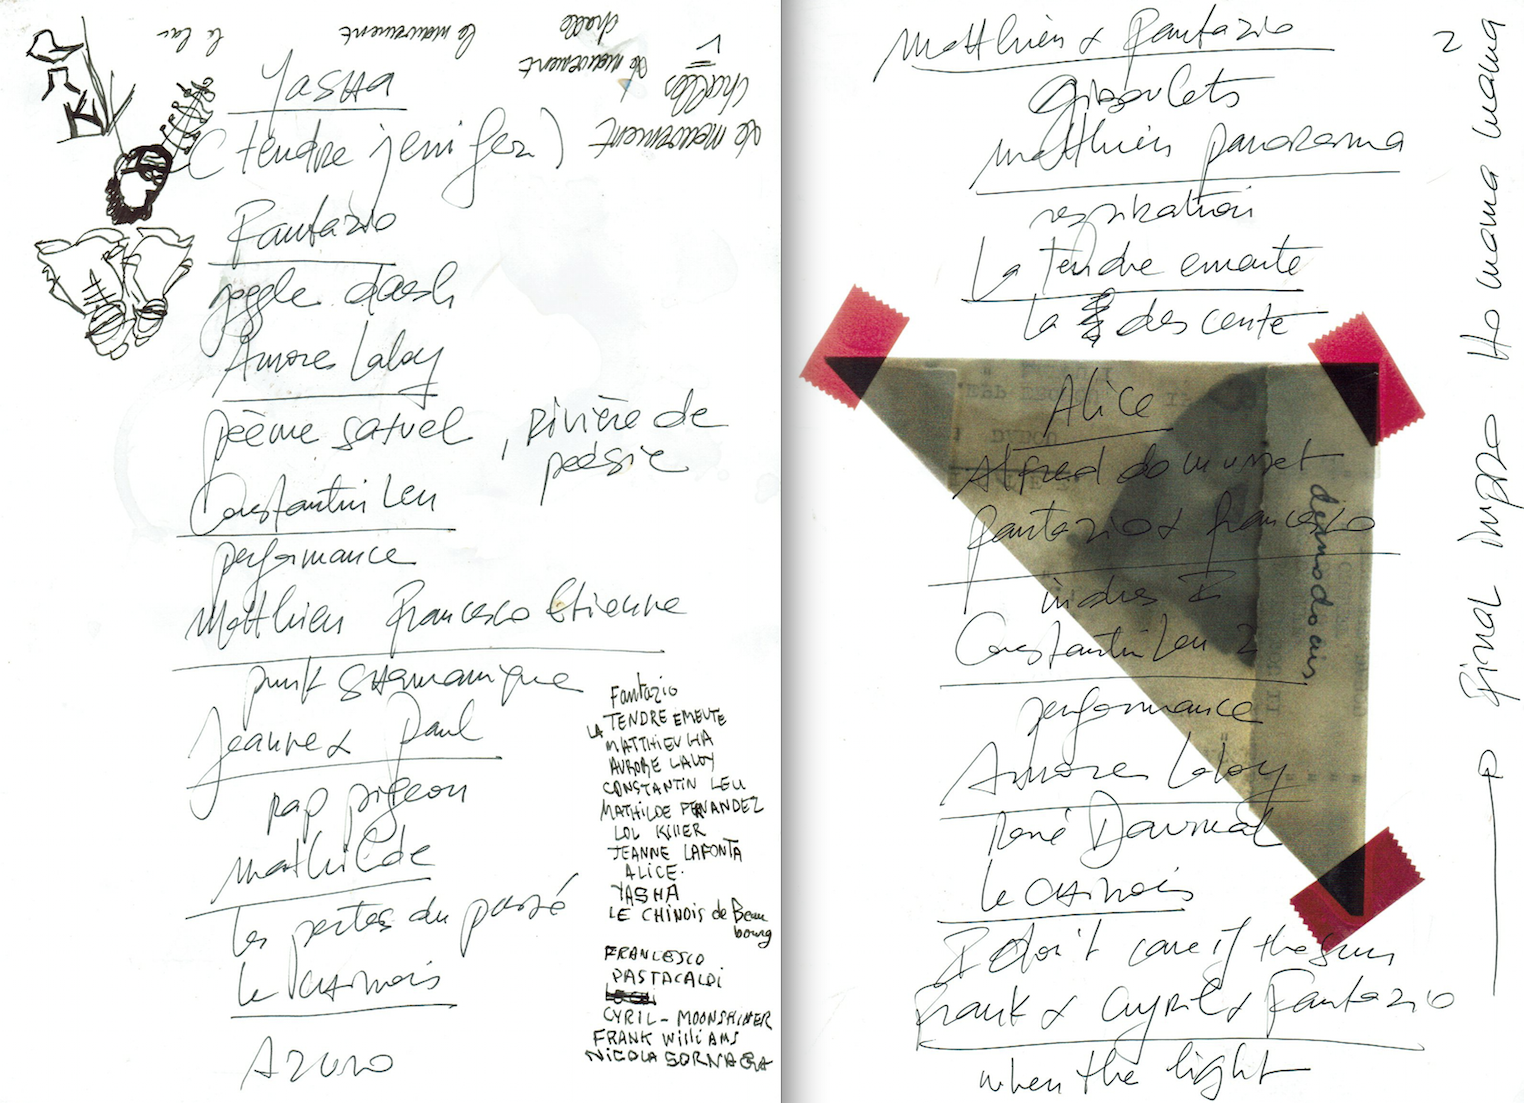 le lac
le mouvement
challe
le mouvement
1
challes
le mouvement
Yasha
(tendre jennifer)
Fantazio
joggle dash
Aurore Laloy
poème satuel, Rivière de
poésie
Constantin Leu
performance
Matthieu Francesco Etienne
punk SHamanique
Jeanne & Paul
rap pigeon
mathilde
les portes du passé
le CHinois
Azuro
Fantazio
LA TENDRE EMEUTE
MATTHIEU HA
AURORE LALOY
CONSTANTIN LEU
MATHILDE FERNANDEZ
LOL KILLER
JEANNE LAFONTA
ALICE.
YASHA
LE CHINOIS de Beau
bourg
FRANCESCO
PASTACALDI
CYRIL - MOONSHINER
FRANK WILLIAMS
NICOLA
2
Matthieu & Fantazio
Matthieu panorama
respiration
La Tendre emeute
La descente
Alice
Alfred de musset
Fantazio & Francesco
Constantin Leu 2
performance
Aurore Laloy
René Daumal
Le CHinois
I don't care if the sun
Frank & Cyril & Fantazio
when the light
final impro Ho mama mama